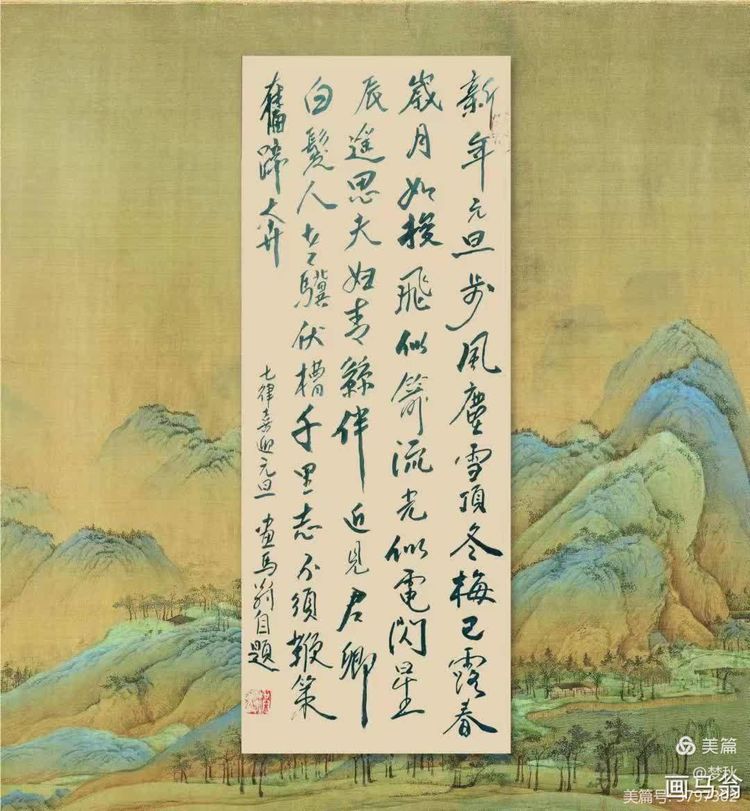 新年元旦步風塵雪頂冬梅已露春
歲月如梭飛似箭流光似電閃星
辰遥思夫妇青絲伴近見君卿
白髮人老驥伏槽千里志不須鞭策
奮蹄奔
七律喜迎元旦 畫馬翁自題
美篇
@梦秋
美篇号:
画马翁